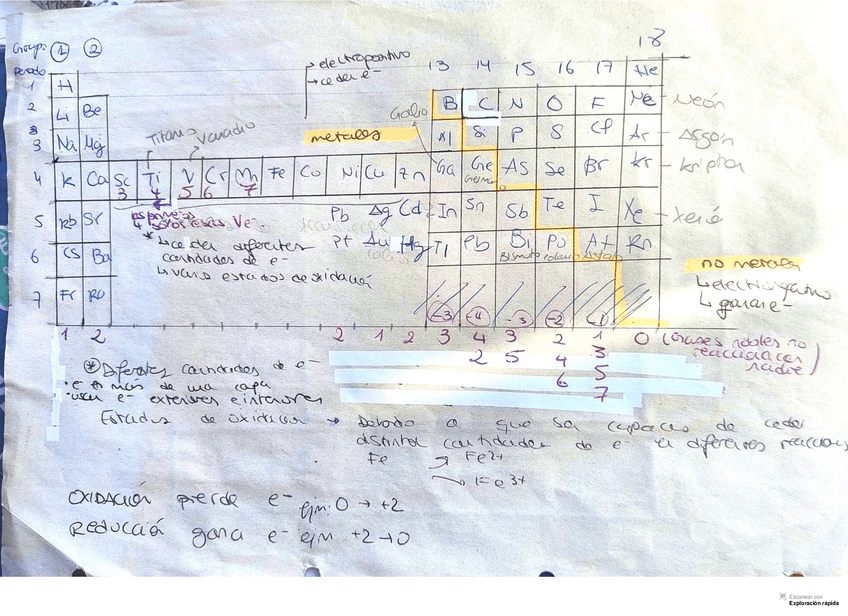 18
Grupo 1 2
Periodo
electropositivo
ceder e-
13 14 15 16 17
1 H He
2 Li Be B C N O F Ne - Neón
Galio
3 Na Mg Al Si P S Cl Ar - Argón
Titanio Vanadio
metales
4 K Ca Sc Ti V Cr Mn Fe Co Ni Cu Zn Ga Ge As Se Br Kr - kripton
3 4 5 6 7
5 Rb Sr Pb Ag Cd In Sn Sb Te I Xe - Xenó
* ceder diferentes
cantidades de e-
varios estados de oxidación
6 Cs Ba Pt Au Hg Tl Pb Bi Po At Rn
Bismuto
no metales
electronegativo
ganar e-
7 Fr Ra
-3 -4 -3 -2 -1
1 2 2 1 2 3 4 3 2 1 0 (Gases nobles no
reaccionan con
nadie)
2 5 4 3
6 5
7
* Diferentes cantidades de e-
• e- en más de una capa
• usan e- exteriores e interiores
Estados de oxidación → Debido a que son capaces de ceder
distintas cantidades de e- en diferentes reacciones
Fe → Fe2+
→ Fe3+
OXIDACIÓN pierde e- ejm: 0 → +2
REDUCCIÓN gana e- ejm +2→0
Escanear con
Exploración rápida